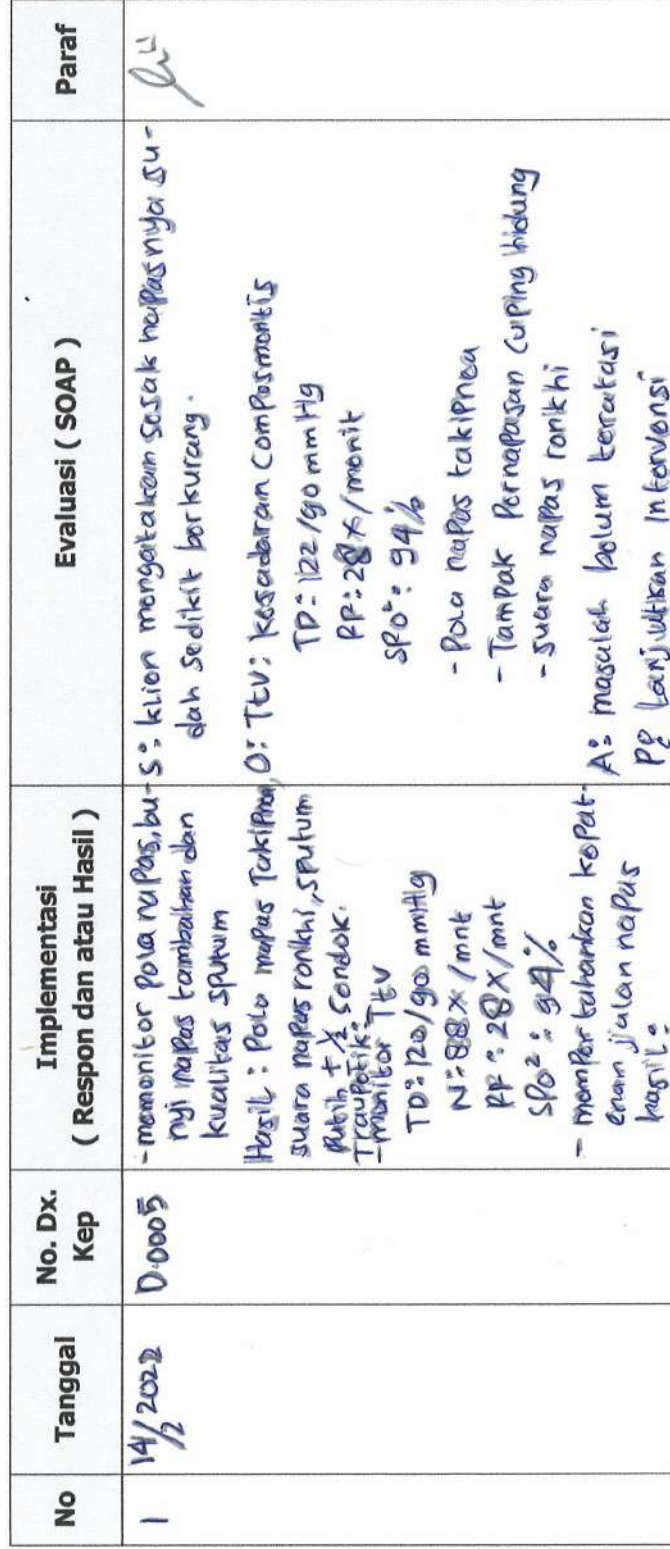 No
Tanggal
No. Dx.
Kep
Implementasi
( Respon dan atau Hasil )
Evaluasi ( SOAP )
Paraf
1
14/2 2022
D.0005
- memonitor pola napas, bu-
nyi napas tambahan dan
kualitas sputum
Hasil : Pola napas Takipnea,
suara napas ronkhi, sputum
Putih + ½ Sendok.
Traupetik:
- monitor TTV
TD : 120/90 mmHg
N : 88x/mnt
RR : 28x/mnt
SPO² : 94%
- mempertahankan kepat-
enan jalan napas
hasil :
S : klien mengatakan sesak napasnya su-
dah sedikit berkurang.
O : TTV : kesadaran Composmentis
TD : 122/90 mmHg
RR : 28x/menit
SPO² : 94%
- Pola napas takipnea
- Tampak Pernapasan Cuping hidung
- suara napas ronkhi
A : masalah belum teratasi
P : Lanjutkan Intervensi